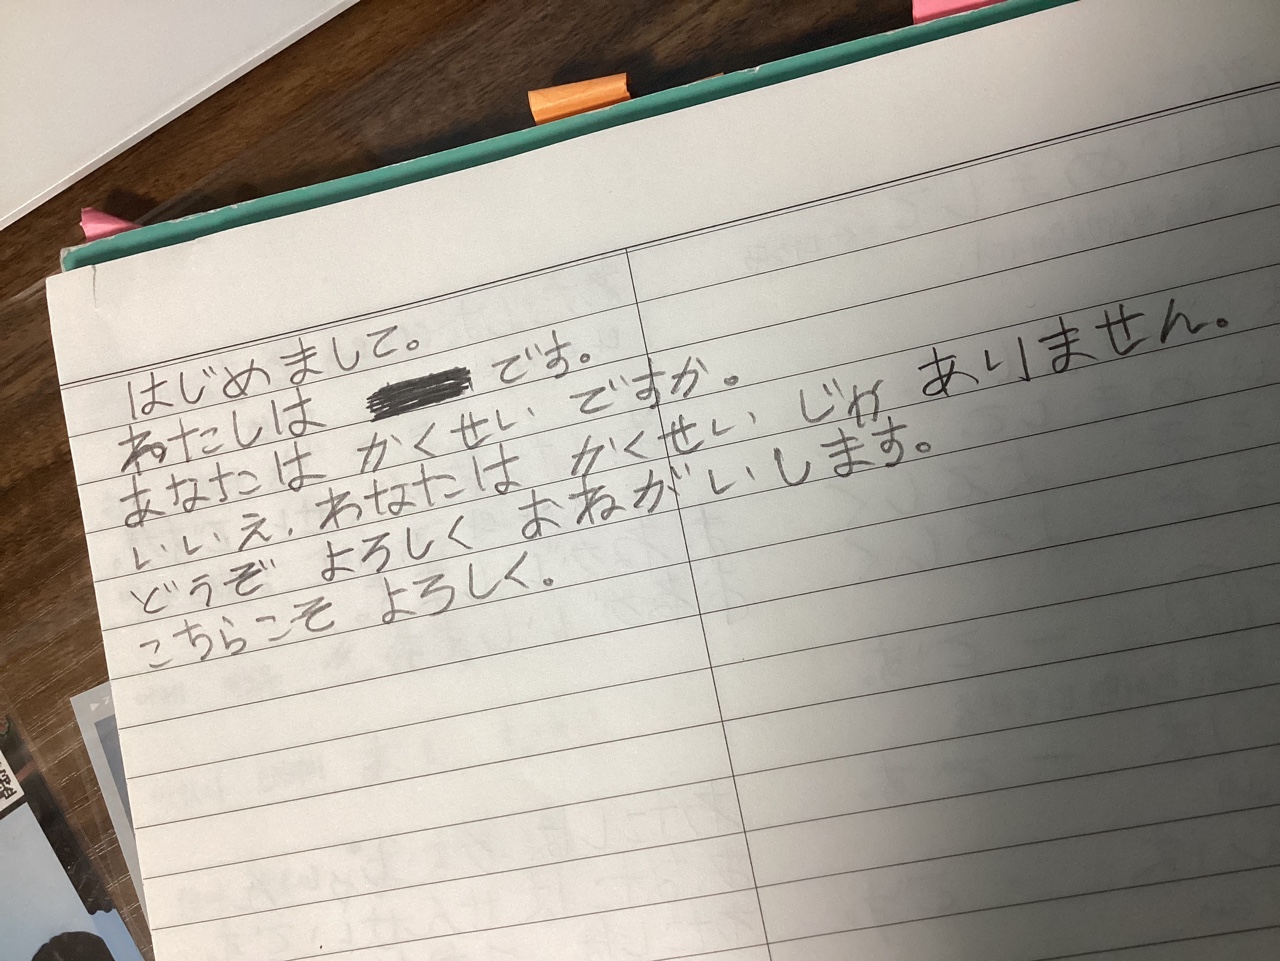 はじめまして。
わたしは です。
あなたは かくせい ですか。
いいえ、わなたは かくせい じゃ ありません。
どうぞ よろしく おねがいします。
こちらこそ よろしく。